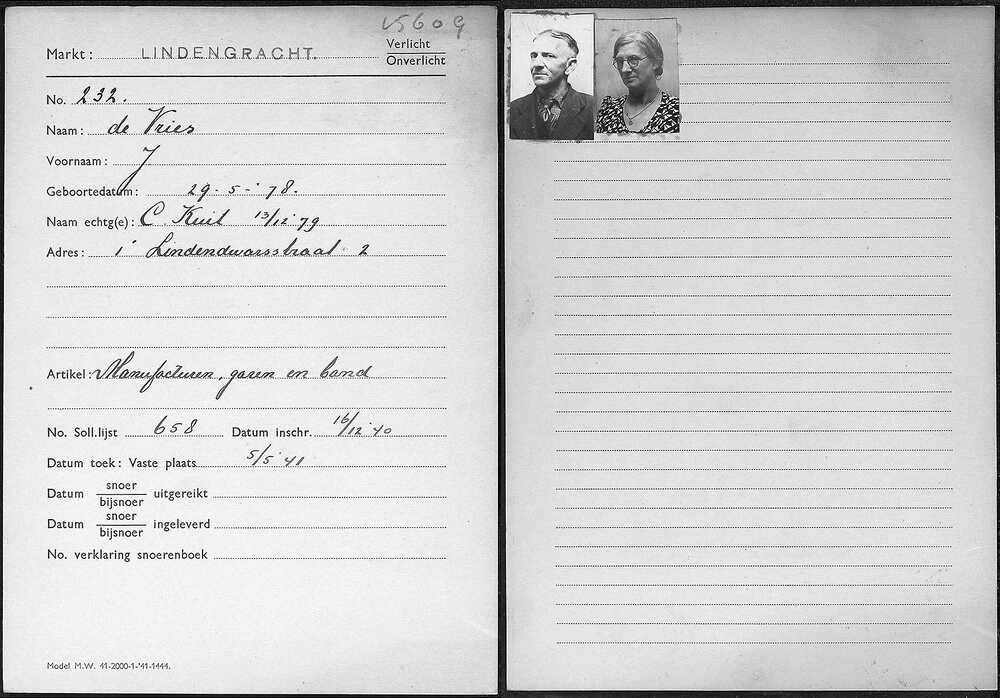 V5609
Markt: LINDENGRACHT. Verlicht
Onverlicht
No. 232.
Naam: de Vries
Voornaam: J
Geboortedatum: 29-5-'78.
Naam echtg(e): C. Kuil 13/12 '79
Adres: 1e Lindendwarsstraat 2
Artikel: Manufacturen, garen en band
No. Soll.lijst 658 Datum inschr. 16/12 '40
Datum toek: Vaste plaats 5/5 '41
Datum snoer/bijsnoer uitgereikt
Datum snoer/bijsnoer ingeleverd
No. verklaring snoerenboek
Model M.W. 41-2000-1-'41-1444.